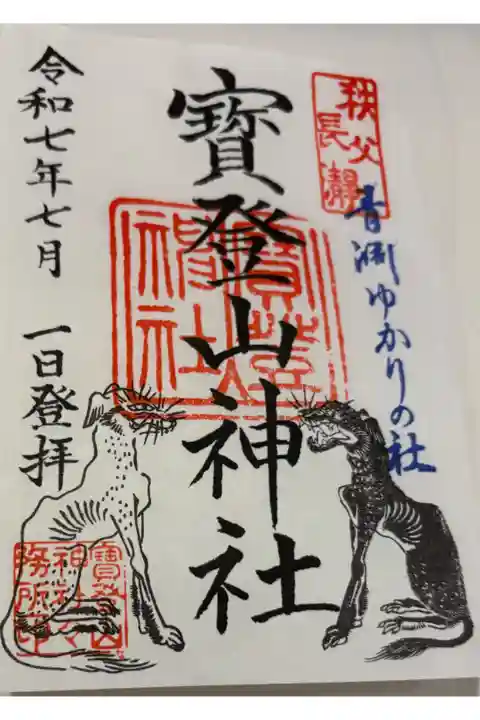 秩父
長瀞
青淵ゆかりの社
寶登山神社
寶登山
神社
令和七年七月 一日登拝
寶登山
神社々
務所印